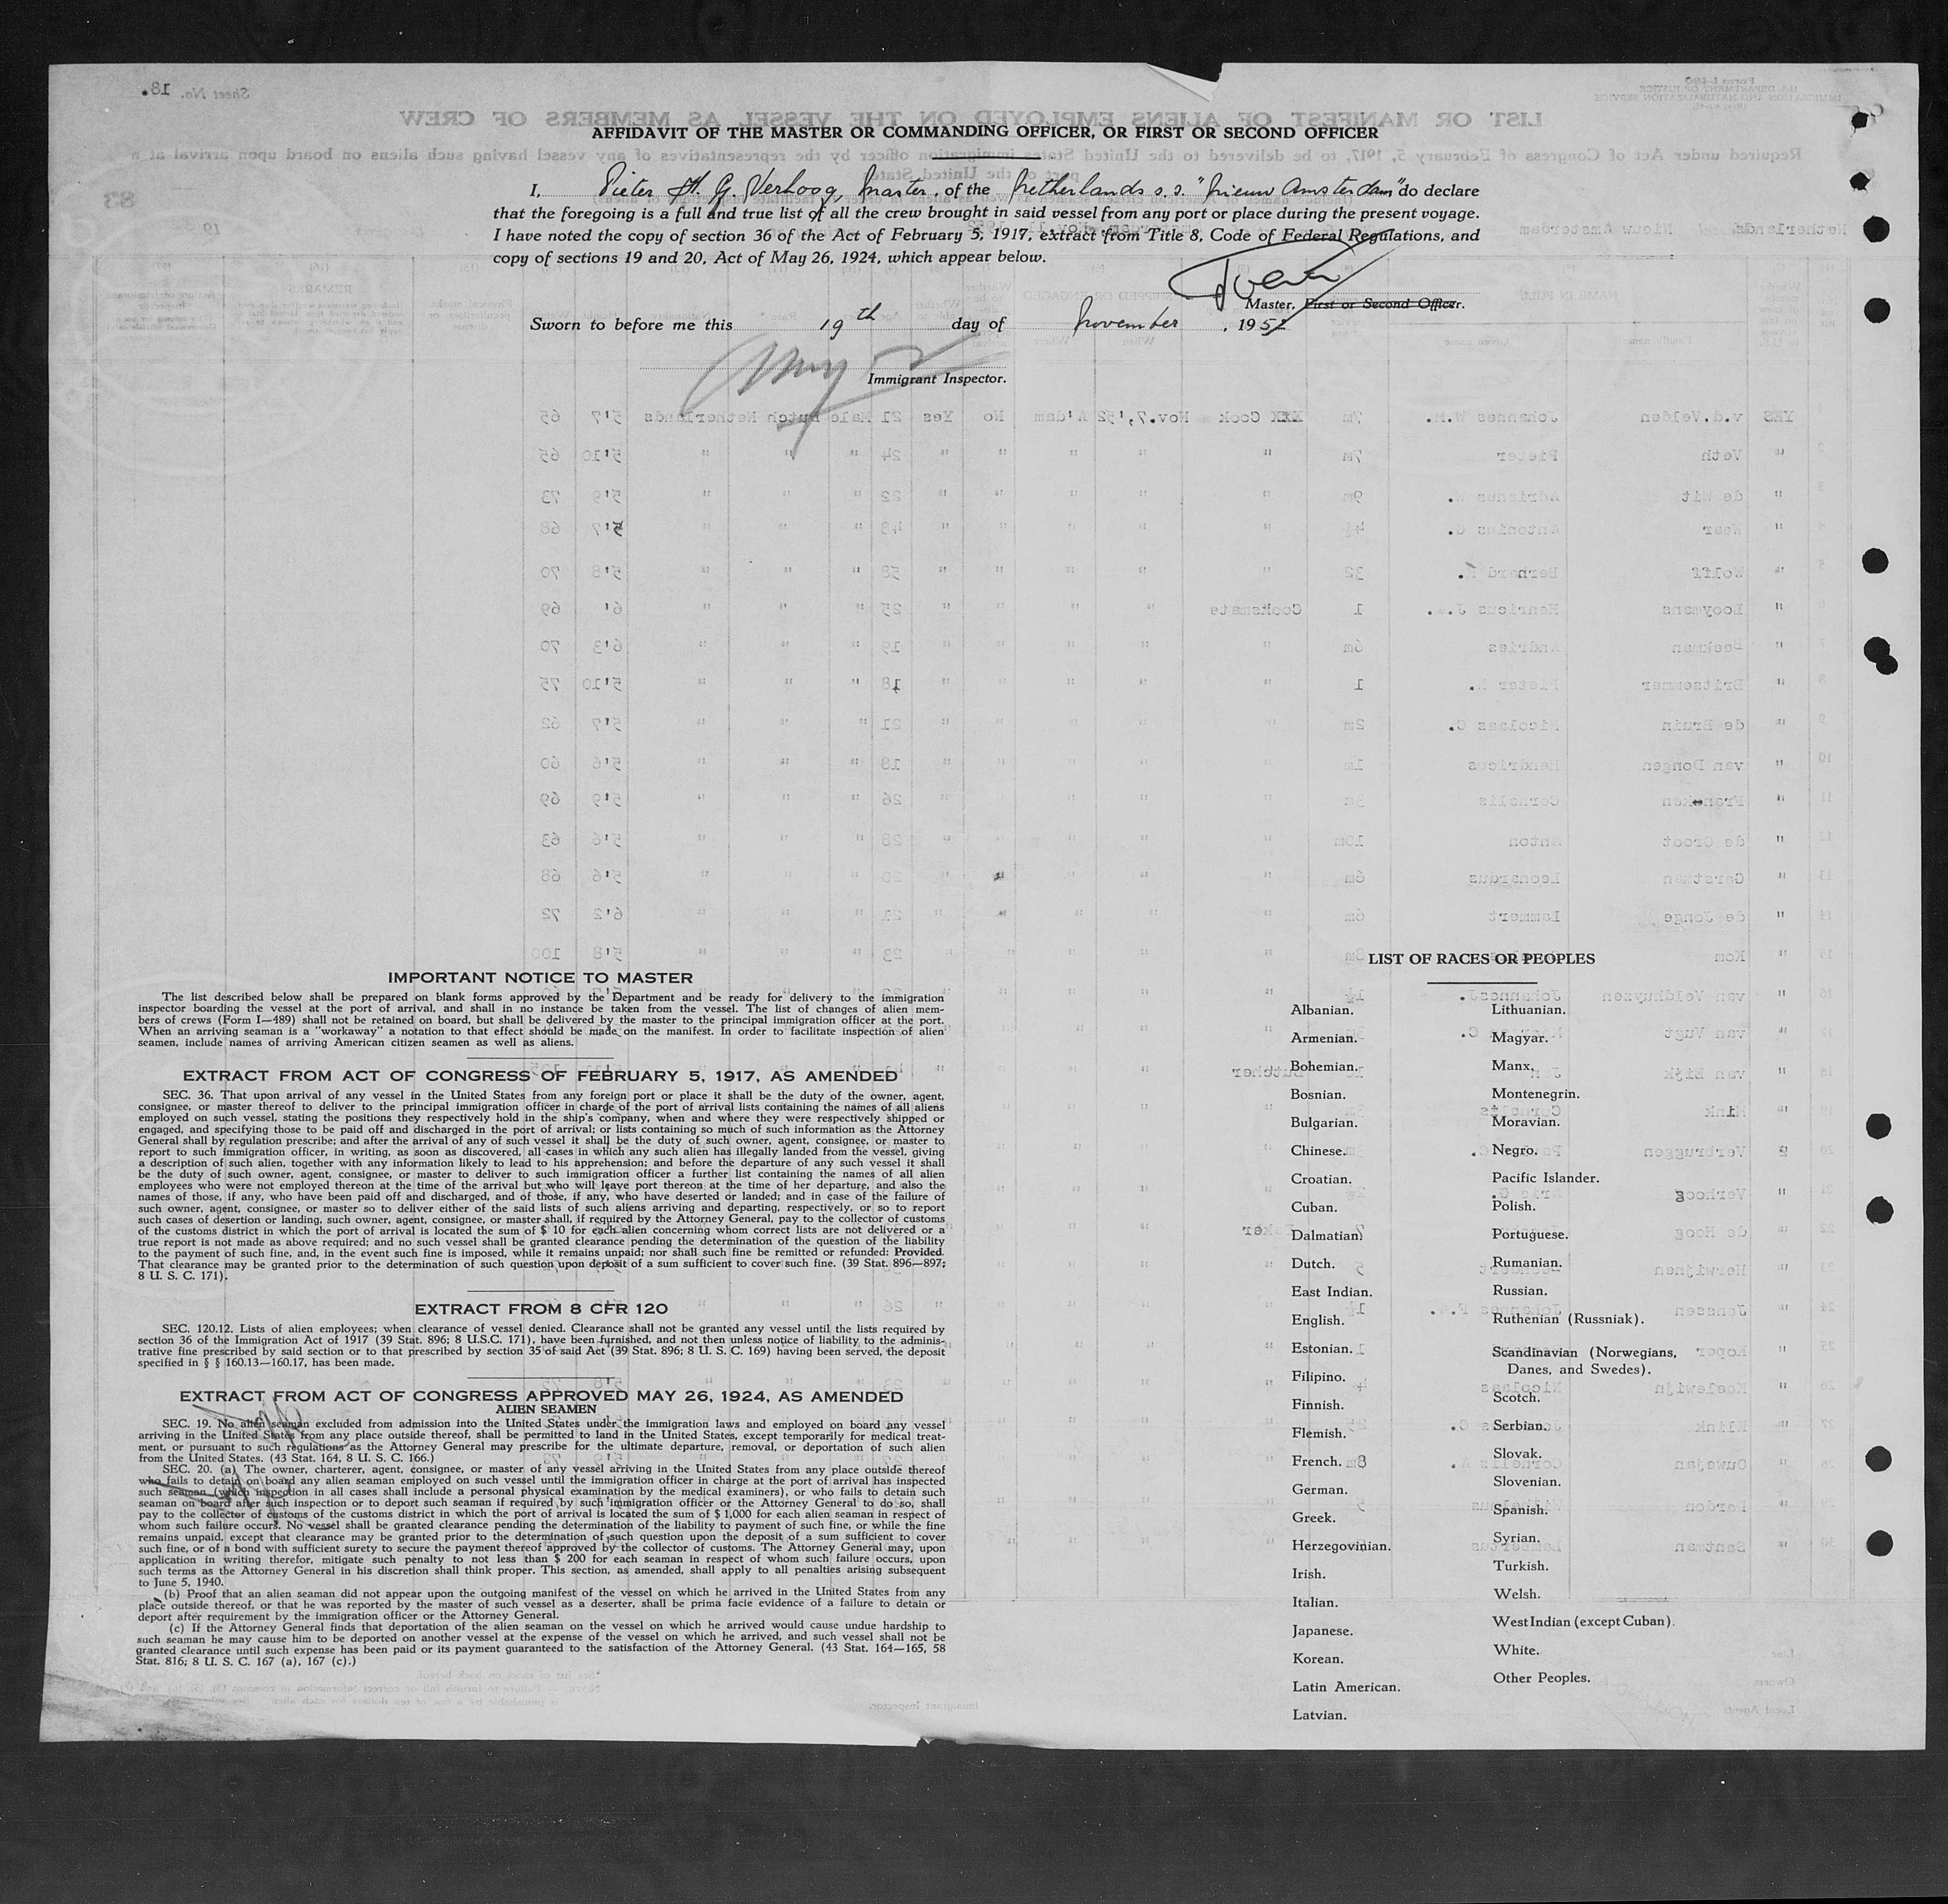 AFFIDAVIT OF THE MASTER OR COMMANDING OFFICER, OR FIRST OR SECOND OFFICER
I, Pieter H. G. Verhoog, Master, of the Netherlands s.s. "Nieuw Amsterdam" do declare
that the foregoing is a full and true list of all the crew brought in said vessel from any port or place during the present voyage.
I have noted the copy of section 36 of the Act of February 5, 1917, extract from Title 8, Code of Federal Regulations, and
copy of sections 19 and 20, Act of May 26, 1924, which appear below.
Master, First or Second Officer.
Sworn to before me this 19th day of November, 1952
Immigrant Inspector.
IMPORTANT NOTICE TO MASTER
The list described below shall be prepared on blank forms approved by the Department and be ready for delivery to the immigration
inspector boarding the vessel at the port of arrival, and shall in no instance be taken from the vessel. The list of changes of alien mem-
bers of crews (Form I—489) shall not be retained on board, but shall be delivered by the master to the principal immigration officer at the port.
When an arriving seaman is a "workaway" a notation to that effect should be made on the manifest. In order to facilitate inspection of alien
seamen, include names of arriving American citizen seamen as well as aliens.
EXTRACT FROM ACT OF CONGRESS OF FEBRUARY 5, 1917, AS AMENDED
SEC. 36. That upon arrival of any vessel in the United States from any foreign port or place it shall be the duty of the owner, agent,
consignee, or master thereof to deliver to the principal immigration officer in charge of the port of arrival lists containing the names of all aliens
employed on such vessel, stating the positions they respectively hold in the ship's company, when and where they were respectively shipped or
engaged, and specifying those to be paid off and discharged in the port of arrival; or lists containing so much of such information as the Attorney
General shall by regulation prescribe; and after the arrival of any of such vessel it shall be the duty of such owner, agent, consignee, or master to
report to such immigration officer, in writing, as soon as discovered, all cases in which any such alien has illegally landed from the vessel, giving
a description of such alien, together with any information likely to lead to his apprehension; and before the departure of any such vessel it shall
be the duty of such owner, agent, consignee, or master to deliver to such immigration officer a further list containing the names of all alien
employees who were not employed thereon at the time of the arrival but who will leave port thereon at the time of her departure, and also the
names of those, if any, who have been paid off and discharged, and of those, if any, who have deserted or landed; and in case of the failure of
such owner, agent, consignee, or master so to deliver either of the said lists of such aliens arriving and departing, respectively, or so to report
such cases of desertion or landing, such owner, agent, consignee, or master shall, if required by the Attorney General, pay to the collector of customs
of the customs district in which the port of arrival is located the sum of $ 10 for each alien concerning whom correct lists are not delivered or a
true report is not made as above required; and no such vessel shall be granted clearance pending the determination of the question of the liability
to the payment of such fine, and, in the event such fine is imposed, while it remains unpaid; nor shall such fine be remitted or refunded: Provided.
That clearance may be granted prior to the determination of such question upon deposit of a sum sufficient to cover such fine. (39 Stat. 896—897;
8 U. S. C. 171).
EXTRACT FROM 8 CFR 120
SEC. 120.12. Lists of alien employees; when clearance of vessel denied. Clearance shall not be granted any vessel until the lists required by
section 36 of the Immigration Act of 1917 (39 Stat. 896; 8 U.S.C. 171), have been furnished, and not then unless notice of liability to the adminis-
trative fine prescribed by said section or to that prescribed by section 35 of said Act (39 Stat. 896; 8 U. S. C. 169) having been served, the deposit
specified in § § 160.13—160.17, has been made.
EXTRACT FROM ACT OF CONGRESS APPROVED MAY 26, 1924, AS AMENDED
ALIEN SEAMEN
SEC. 19. No alien seaman excluded from admission into the United States under the immigration laws and employed on board any vessel
arriving in the United States from any place outside thereof, shall be permitted to land in the United States, except temporarily for medical treat-
ment, or pursuant to such regulations as the Attorney General may prescribe for the ultimate departure, removal, or deportation of such alien
from the United States. (43 Stat. 164, 8 U. S. C. 166.)
SEC. 20. (a) The owner, charterer, agent, consignee, or master of any vessel arriving in the United States from any place outside thereof
who fails to detain on board any alien seaman employed on such vessel until the immigration officer in charge at the port of arrival has inspected
such seaman (which inspection in all cases shall include a personal physical examination by the medical examiners), or who fails to detain such
seaman on board after such inspection or to deport such seaman if required by such immigration officer or the Attorney General to do so, shall
pay to the collector of customs of the customs district in which the port of arrival is located the sum of $ 1,000 for each alien seaman in respect of
whom such failure occurs. No vessel shall be granted clearance pending the determination of the liability to payment of such fine, or while the fine
remains unpaid, except that clearance may be granted prior to the determination of such question upon the deposit of a sum sufficient to cover
such fine, or of a bond with sufficient surety to secure the payment thereof approved by the collector of customs. The Attorney General may, upon
application in writing therefor, mitigate such penalty to not less than $ 200 for each seaman in respect of whom such failure occurs, upon
such terms as the Attorney General in his discretion shall think proper. This section, as amended, shall apply to all penalties arising subsequent
to June 5, 1940.
(b) Proof that an alien seaman did not appear upon the outgoing manifest of the vessel on which he arrived in the United States from any
place outside thereof, or that he was reported by the master of such vessel as a deserter, shall be prima facie evidence of a failure to detain or
deport after requirement by the immigration officer or the Attorney General.
(c) If the Attorney General finds that deportation of the alien seaman on the vessel on which he arrived would cause undue hardship to
such seaman he may cause him to be deported on another vessel at the expense of the vessel on which he arrived, and such vessel shall not be
granted clearance until such expense has been paid or its payment guaranteed to the satisfaction of the Attorney General. (43 Stat. 164—165, 58
Stat. 816; 8 U. S. C. 167 (a), 167 (c).)
LIST OF RACES OR PEOPLES
Albanian.
Armenian.
Bohemian.
Bosnian.
Bulgarian.
Chinese.
Croatian.
Cuban.
Dalmatian.
Dutch.
East Indian.
English.
Estonian.
Filipino.
Finnish.
Flemish.
French.
German.
Greek.
Herzegovinian.
Irish.
Italian.
Japanese.
Korean.
Latin American.
Latvian.
Lithuanian.
Magyar.
Manx.
Montenegrin.
Moravian.
Negro.
Pacific Islander.
Polish.
Portuguese.
Rumanian.
Russian.
Ruthenian (Russniak).
Scandinavian (Norwegians,
Danes, and Swedes).
Scotch.
Serbian.
Slovak.
Slovenian.
Spanish.
Syrian.
Turkish.
Welsh.
West Indian (except Cuban).
White.
Other Peoples.